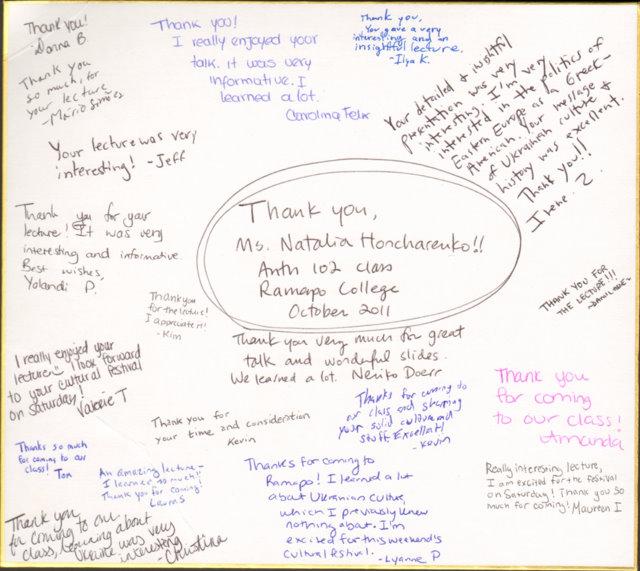 Thank you!
Donna B.
Thank you
so much, for
your lecture
-Mário Simões
Thank you!
I really enjoyed your
talk. it was very
informative. I
learned a lot.
Carolina Felix
Thank you,
You gave a very
interesting and an
insightful lecture.
-Ilya K.
Your detailed & insightful
presentation was very
interesting. I'm very
interested in the politics of
Eastern Europe as a Greek-
American. Your message &
of Ukrainian culture &
history was excellent.
Thank you!!
Irene. Z
Your lecture was very
interesting! -Jeff
Thank you for your
lecture! It was very
interesting and informative.
Best wishes,
Yolandi P.
Thank you,
Ms. Natalia Honcharenko!!
Anth 102 class
Ramapo College
October 2011
Thank you
for the lecture!
I appreciate it!
-Kim
THANK YOU FOR
THE LECTURE!!!
Thank you very much for great
talk and wonderful slides.
We learned a lot. Neriko Doerr
I really enjoyed your
lecture. I look forward
to your cultural festival
on Saturday!
Valerie T
Thank you for
your time and consideration
Kevin
Thanks for coming to
our class and sharing
your solid culture and
stuff. Excellent!
-Kevin
Thank you
for coming
to our class!
Amanda
Thanks so much
for coming to our
class! Tom
An amazing lecture-
I learned so much!
Thank you for coming!
Laura S
Thanks for coming to
Ramapo! I learned a lot
about Ukranian Culture,
which I previously knew
nothing about. I'm
excited for this weekend's
cultural festival.
-Lyanne P
Really interesting lecture,
I am excited for the festival
on Saturday! Thank you so
much for coming! Maureen I
Thank you
for coming to our
class, learning about
Ukraine was very
interesting
-Christina